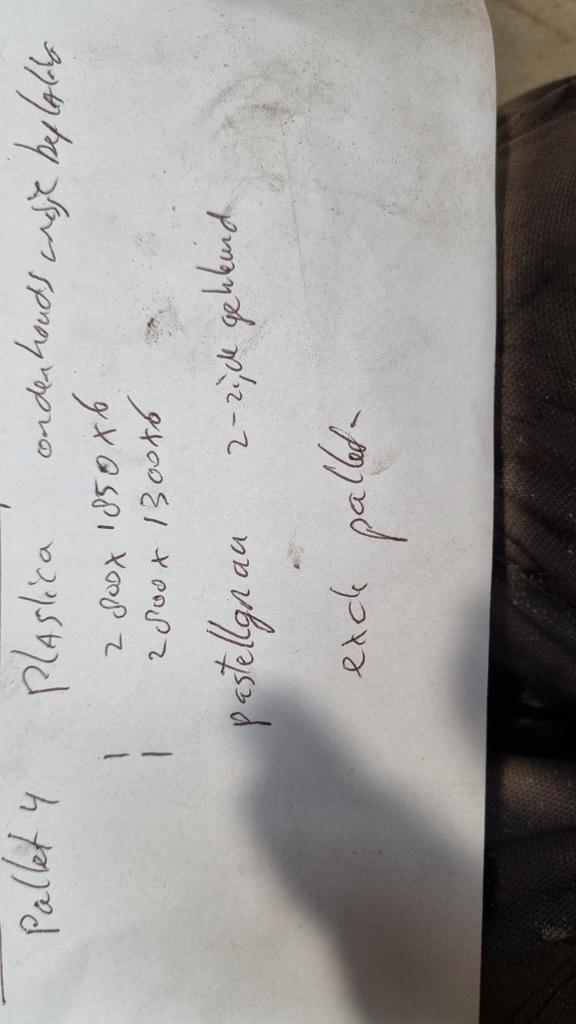 Pallet 4 Plastica onderhoudsarme beplating
1 2800 x 1850 x 6
1 2800 x 1300 x 6
pastellgrau 2-zijde gekleurd
excl pallet